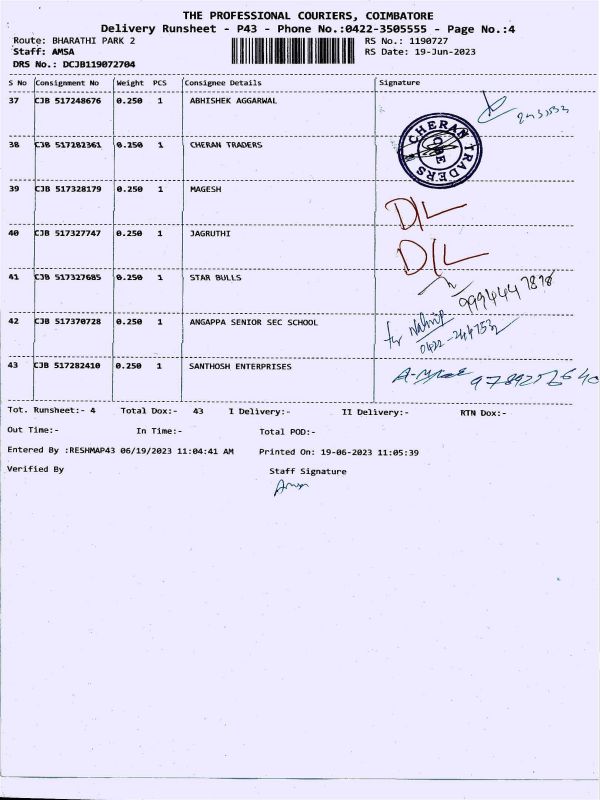 THE PROFESSIONAL COURIERS, COIMBATORE
Delivery Runsheet - P43 - Phone No.:0422-3505555 - Page No.:4
Route: BHARATHI PARK 2 RS No.: 1190727
Staff: AMSA RS Date: 19-Jun-2023
DRS No.: DCJB119072704
S No Consignment No Weight PCS Consignee Details Signature
37 CJB 517248676 0.250 1 ABHISHEK AGGARWAL
38 CJB 517282361 0.250 1 CHERAN TRADERS CHERAN TRADERS CBE
39 CJB 517328179 0.250 1 MAGESH D/L
40 CJB 517327747 0.250 1 JAGRUTHI D/L
41 CJB 517327685 0.250 1 STAR BULLS
42 CJB 517370728 0.250 1 ANGAPPA SENIOR SEC SCHOOL for
43 CJB 517282410 0.250 1 SANTHOSH ENTERPRISES
Tot. Runsheet:- 4 Total Dox:- 43 I Delivery:- II Delivery:- RTN Dox:-
Out Time:- In Time:- Total POD:-
Entered By :RESHMAP43 06/19/2023 11:04:41 AM Printed On: 19-06-2023 11:05:39
Verified By Staff Signature